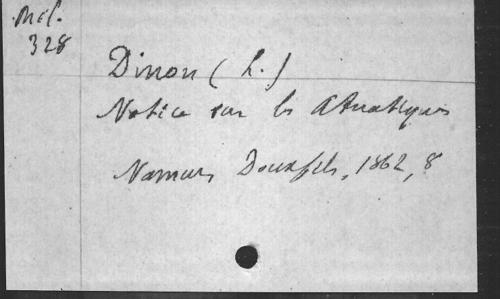 Mél.
328
Dinon (L.)
Notice sur les Atuatiques
Namur, Douxfils, 1862, 8